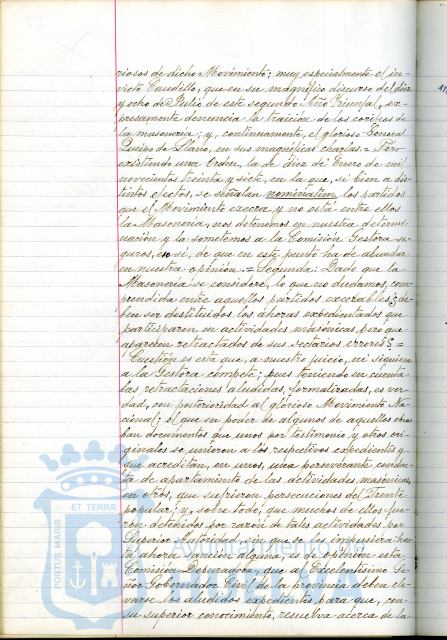 riosos de dicho Movimiento; muy especialmente el in-
victo Caudillo, que en su magnífico discurso del diez
y ocho de Julio de este segundo Año Triunfal, ex-
presamente denuncia la traición de los corifeos de
la masonería; y, continuamente, el glorioso General
Queipo de Llano, en sus magníficas charlas.- Pero
existiendo una Orden, la de diez de Enero de mil
novecientos treinta y siete, en la que, si bien a dis-
tintos efectos, se señalan nominatim los partidos
que el Movimiento execra y no está entre ellos
la Masonería, nos detenemos en nuestra determi-
nación y la sometemos a la Comisión Gestora se-
guros, eso sí, de que en este punto ha de abundar
en nuestra opinión.= Segunda: Dado que la
Masonería se considere, lo que no dudamos, com-
prendida entre aquellos partidos execrables, ¿de-
ben ser destituidos los ahora expedientados que
participaron en actividades masónicas, pero que
aparecen retractados de sus sectarios errores? =
Cuestión es esta que, a nuestro juicio, ni siquiera
a la Gestora compete; pues teniendo en cuenta
las retractaciones aludidas, formalizadas, es ver-
dad, con posterioridad al glorioso Movimiento Na-
cional; el que en poder de algunos de aquellos obra-
ban documentos que unos por testimonio y otros ori-
ginales se unieron a los respectivos expedientes y
que acreditan, en unos, una perseverante conduc-
ta de apartamiento de las actividades masónicas,
en otros, que sufrieron persecuciones del Frente
popular; y, sobre todo, que muchos de ellos fue-
ron detenidos por razón de tales actividades por
Superior Autoridad, sin que se les impusiera has-
ta ahora sanción alguna, es de opinión esta
Comisión Depuradora, que al Excelentísimo Se-
ñor Gobernador Civil de la provincia deben ele-
varse los aludidos expedientes para que, con
su superior conocimiento, resuelva acerca de la
PORTUS MARIS ET TERRÆ